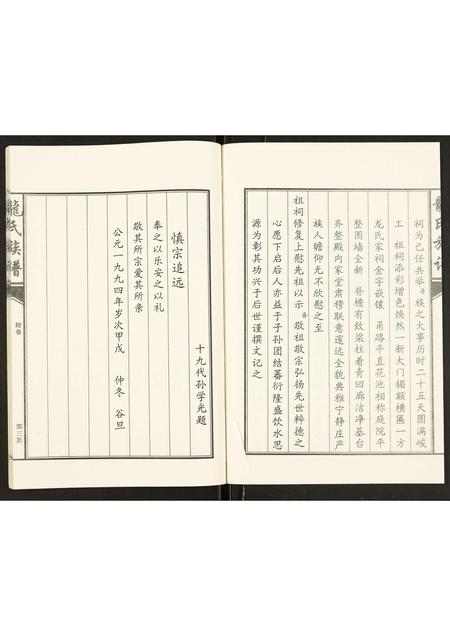 祠为己任共举吾族之大事历时二十五天圆满峻
工　祖祠添彩增色焕然一新大门楣额横匾一方
龙氏家祠金字嵌镶　甬路平直花池相称庭院平
整围墙全新　脊檐有致梁柱着青回廊洁净基台
齐整殿内家堂肃穆联意邃远全貌典雅宁静庄严
族人瞻仰无不欣慰之至
祖祠修复上慰先祖以示吾敬祖敬宗弘扬先世粹德之
心愿下启后人亦益于子孙团结蕃衍隆盛饮水思
源为彰其功兴于后世谨撰文记之
十九代孙学光题
慎宗追远
奉之以乐安之以礼
敬其所宗爱其所亲
公元一九九四年岁次甲戊　仲冬　谷旦
龍氏族譜
附卷
第三页